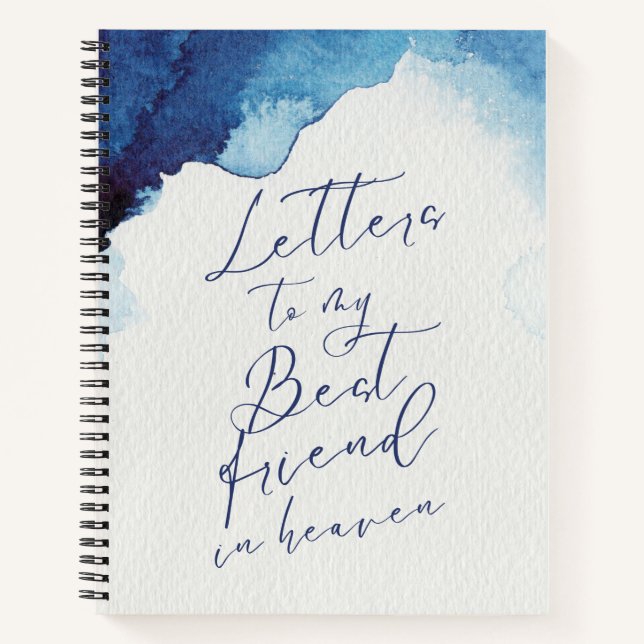 Letters
to my
Best
friend
in heaven